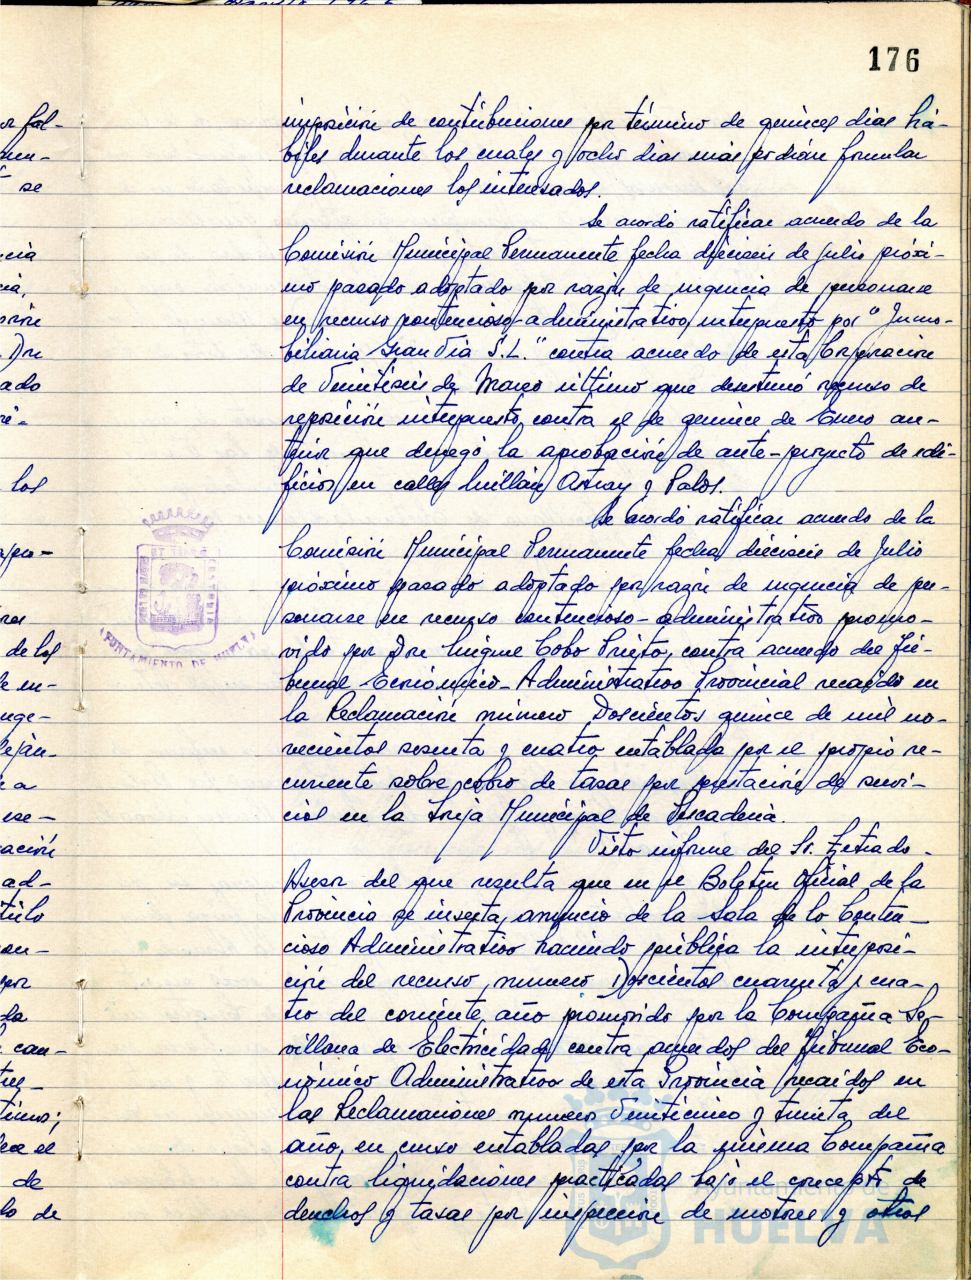 176
imposición de contribuciones por término de quince días há-
biles durante los cuales y ocho días más podrán formular
reclamaciones los interesados.
Se acordó ratificar acuerdo de la
Comisión Municipal Permanente fecha dieciseis de Julio próxi-
mo pasado adoptado por razón de urgencia de personarse
en recurso contencioso-administrativo, interpuesto por "Inmo-
biliaria Gran Vía S.L." contra acuerdo de esta Corporación
de Veintiseis de Marzo último que desestimó recurso de
reposición interpuesto contra el de quince de Enero an-
terior que denegó la aprobación de ante-proyecto de edi-
ficios en calles Millán Astray y Palos.
Se acordó ratificar acuerdo de la
Comisión Municipal Permanente fecha dieciseis de Julio
próximo pasado adoptado por razón de urgencia de per-
sonarse en recurso contencioso-administrativo promo-
vido por Don Enrique Cobo Prieto, contra acuerdo del Tri-
bunal Económico-Administrativo Provincial recaído en
la Reclamación número Doscientos quince de mil no-
vecientos sesenta y cuatro entablada por el propio re-
currente sobre cobro de tasas por prestación de servi-
cios en la Lonja Municipal de Pescadería.
Visto informe del Sr. Letrado-
Asesor del que resulta que en el Boletín Oficial de la
Provincia se inserta anuncio de la Sala de lo Conten-
cioso Administrativo haciendo pública la interposi-
ción del recurso número Doscientos cuarenta y cua-
tro del corriente año promovido por la Compañía Se-
villana de Electricidad contra acuerdos del Tribunal Eco-
nómico Administrativo de esta Provincia recaídos en
las Reclamaciones número Veinticinco y treinta del
año en curso entabladas por la misma Compañía
contra liquidaciones practicadas bajo el concepto de
derechos y tasas por inspección de motores y otros
AYUNTAMIENTO DE HUELVA
Ayuntamiento de
HUELVA